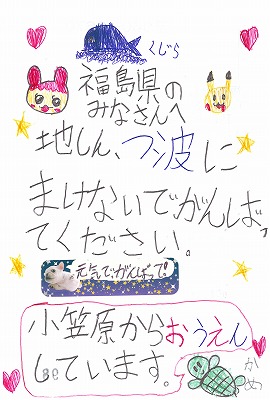 くじら
福島県の
みなさんへ
地しん、つ波に
まけないでがんばっ
てください。
元気でがばって!
小笠原からおうえん
しています。
かめ